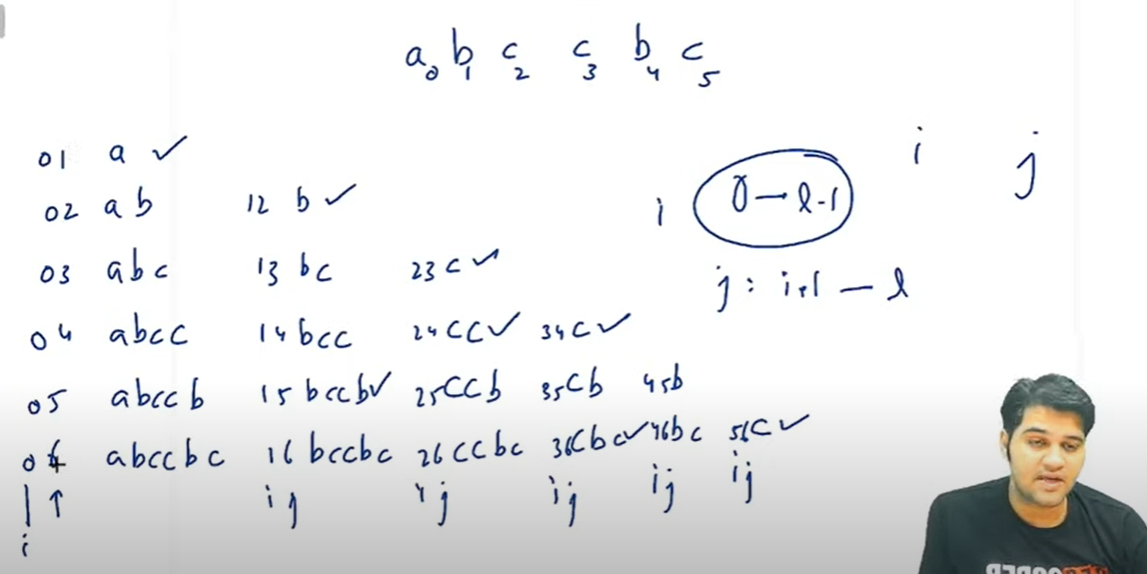 a0 b1 c2 c3 b4 c5
i j
01 a ✓
02 ab 12 b ✓
i 0 — l-1
03 abc 13 bc 23 c ✓
j : i+1 — l
04 abcc 14 bcc 24 cc ✓ 34 c ✓
05 abccb 15 bccb ✓ 25 ccb 35 cb 45 b
06 abccbc 16 bccbc 26 ccbc 36 cbc ✓ 46 bc 56 c ✓
i j i j i j i j i j
i